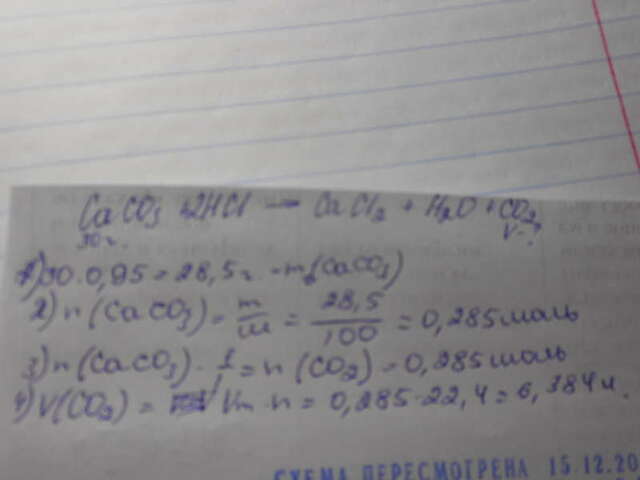 CaCO₃ + 2HCl → CaCl₂ + H₂O + CO₂
30 г. V-?
1) 30 · 0,95 = 28,5 г. - m (CaCO₃)
2) n (CaCO₃) = m/M = 28,5/100 = 0,285 моль
3) n (CaCO₃) · 1/1 = n (CO₂) = 0,285 моль
4) V(CO₂) = Vm · n = 0,285 · 22,4 = 6,384 л.
СХЕМА ПЕРЕСМОТРЕНА 15.12.20